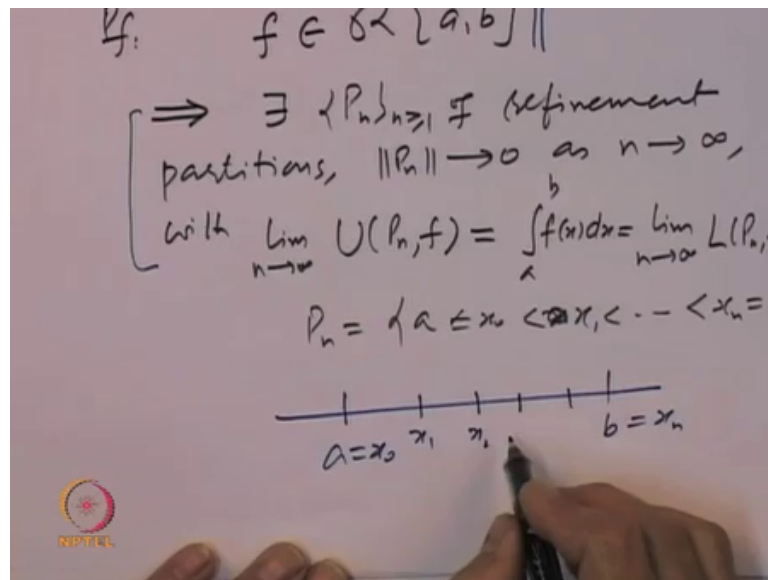 Pf. f ∈ R [a, b]
⟹ ∃ {Pn}n≥1 of refinement
partitions, ||Pn|| → 0 as n → ∞,
with Lim n→∞ U(Pn, f) = ∫ₐᵇ f(x)dx = Lim n→∞ L(Pn,
Pn = { a = x₀ < x₁ < -- < xn =
a = x₀ x₁ x₂ b = xn
NPTEL